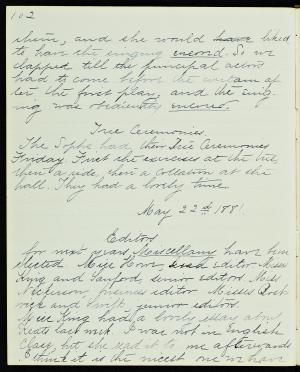 102
them, and she would have liked
to have the singing encored. So we
clapped till the principal actors
had to come before the curtain af
ter the first play, and the sing
ing was obediently encored.
Tree Ceremonies.
The Sophs had their Tree Ceremonies
Friday. First the exercises at the tree,
then a ride, then a collation at the
hall. They had a lovely time.
May 22nd 1881.
Editors
for next years Miscellany have been
elected. Miss Howe, head editor Misses
King and Sanford, senior editors Miss
editor Misses
and Swift, junior editors.
Miss King had a lovely essay about
Keats last week. I was not in English
Class, but she read it to me afterwards
I think it is the nicest one we have